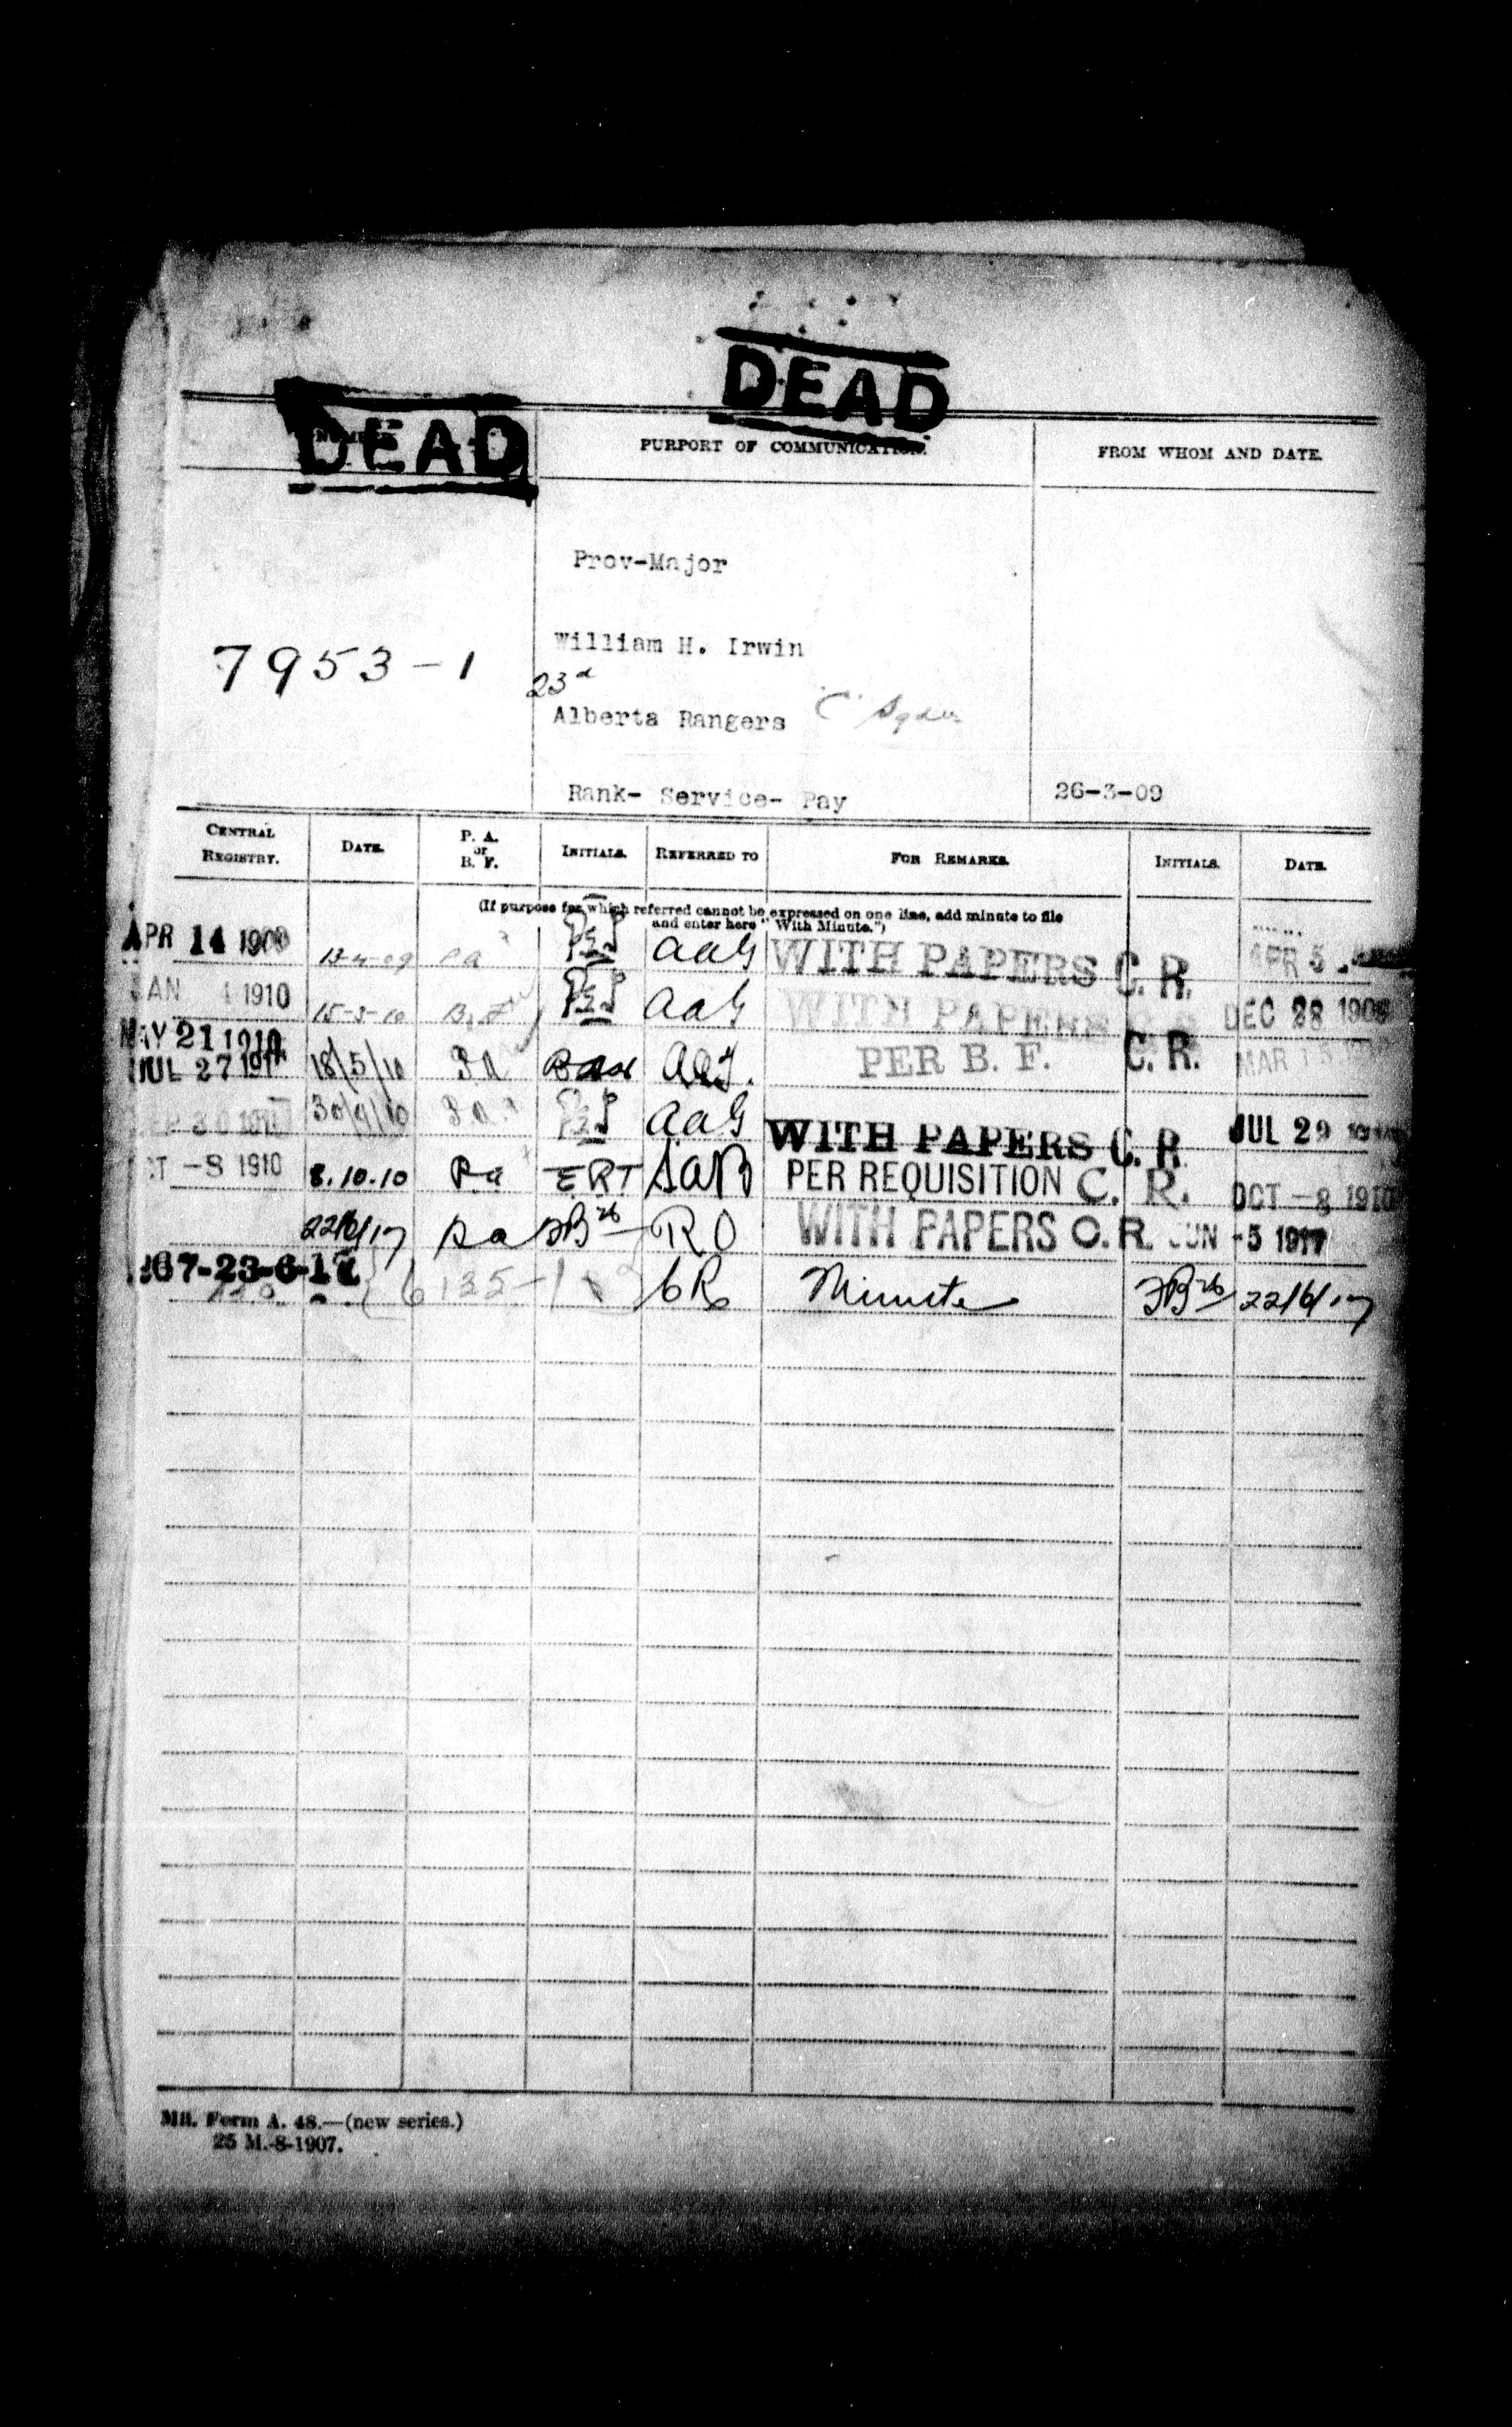 DEAD
DEAD
PURPORT OF COMMUNICATION.
FROM WHOM AND DATE.
Prov-Major
7953-1
William H. Irwin
23d
Alberta Rangers "C" Sqdn
Rank- Service- Pay
26-3-09
CENTRAL REGISTRY.
DATE.
P. A. or B. F.
INITIALS.
REFERRED TO
FOR REMARKS.
INITIALS.
DATE.
(If purpose for which referred cannot be expressed on one line, add minute to file
and enter here "With Minute.")
APR 14 1909 13-4-09 PA AAG WITH PAPERS C. R. APR 5
JAN 4 1910 15-3-10 B.F. AAG WITH PAPERS DEC 28 1909
MAY 21 1910
JUL 27 191 18/5/10 P.A. PER B. F. C. R. MAR
SEP 30 1910 30/9/10 P.A. AAG WITH PAPERS C. R. JUL 29
OCT -8 1910 8.10.10 Pa ERT PER REQUISITION C. R. OCT -8 1910
22/6/17 RO WITH PAPERS C. R. JUN -5 1917
167-23-6-17 6135-1 CR Minute 22/6/17
Mil. Form A. 48.—(new series.)
25 M.-8-1907.